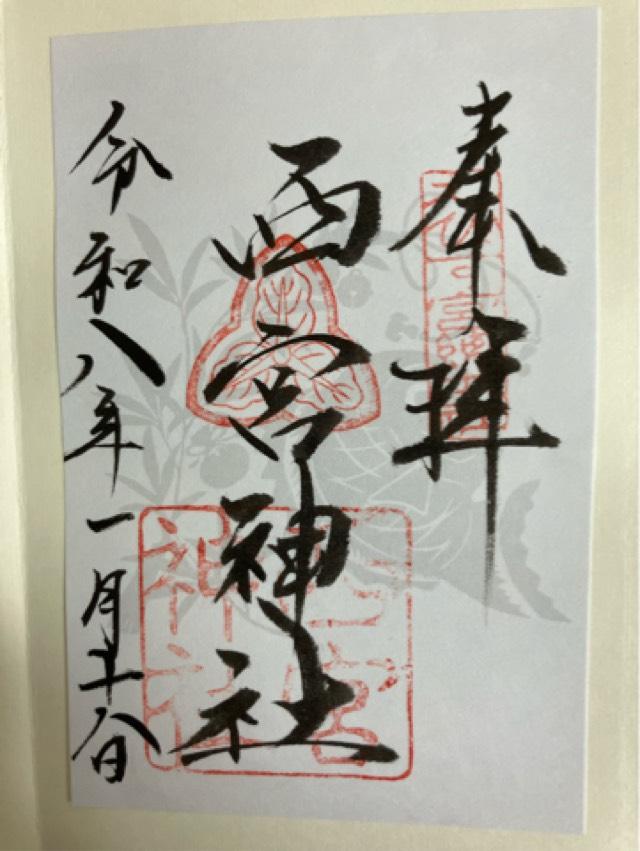 奉拝
西宮神社
令和八年一月十八日
西宮
神社